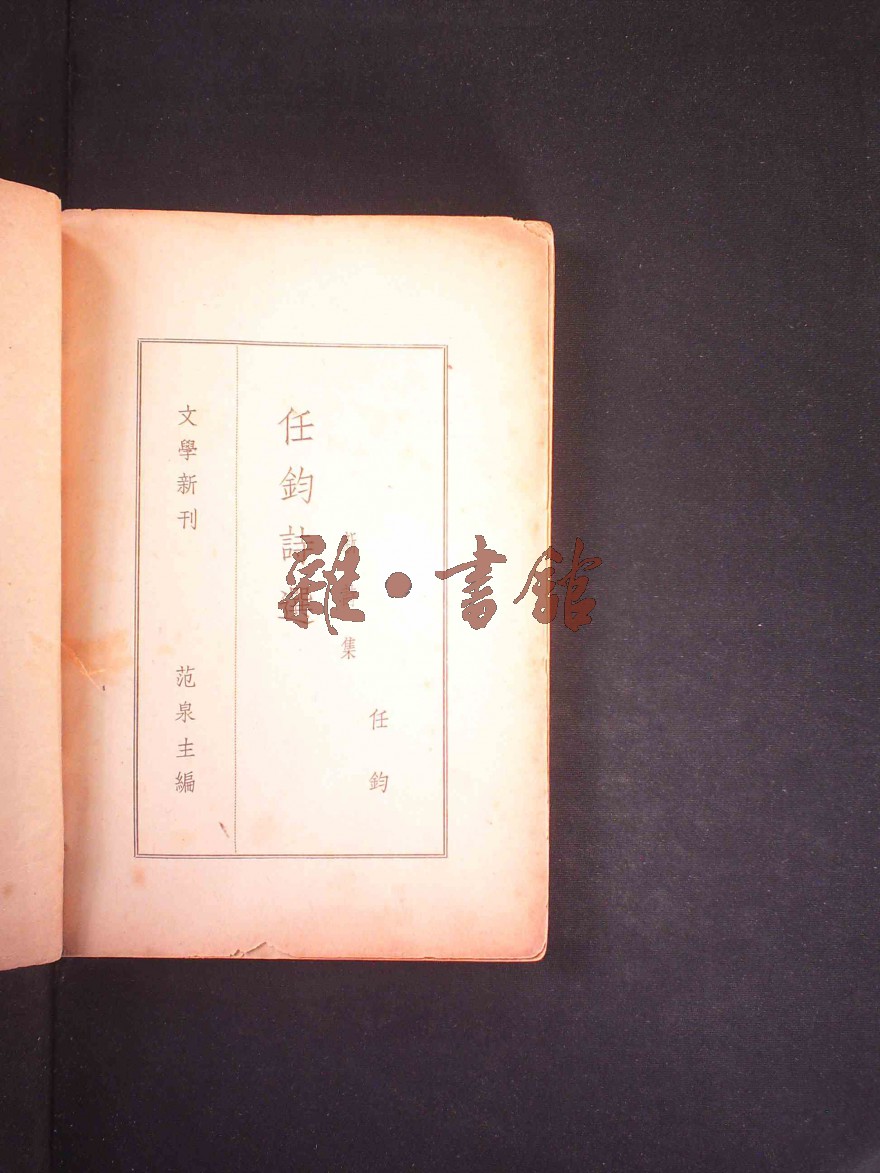 任鈞
集
任鈞詩選
文學新刊
范泉主編
雜·書館